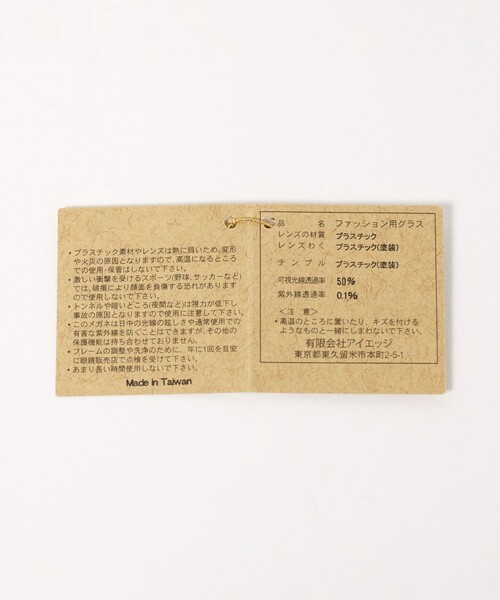 ・プラスチック素材やレンズは熱に弱いため、変形
や火災の原因となりますので、高温になるところ
での使用・保管はしないで下さい。
・激しい衝撃を受けるスポーツ(野球、サッカーなど)
では、破損により顔面を負傷する恐れがあります
ので使用しないで下さい。
・トンネルや暗いところ(夜間など)は視力が低下し
事故の原因となりますので使用に注意して下さい。
・このメガネは日中の光線の眩しさや通常使用での
有害な紫外線を防ぐことはできますが、その他の
保護機能は持ち合わせておりません。
・フレームの調整や洗浄のために、年に1回を目安
に眼鏡販売店で点検を受けて下さい。
・あまり長い時間使用しないで下さい。
Made in Taiwan
品 名 ファッション用グラス
レンズの材質 プラスチック
レンズわく プラスチック(塗装)
テンプル プラスチック(塗装)
可視光線透過率 50%
紫外線透過率 0.1%
＜注 意＞
・高温のところに置いたり、キズを付ける
ようなものと一緒にしまわないで下さい。
有限会社アイエッジ
東京都東久留米市本町2-5-1